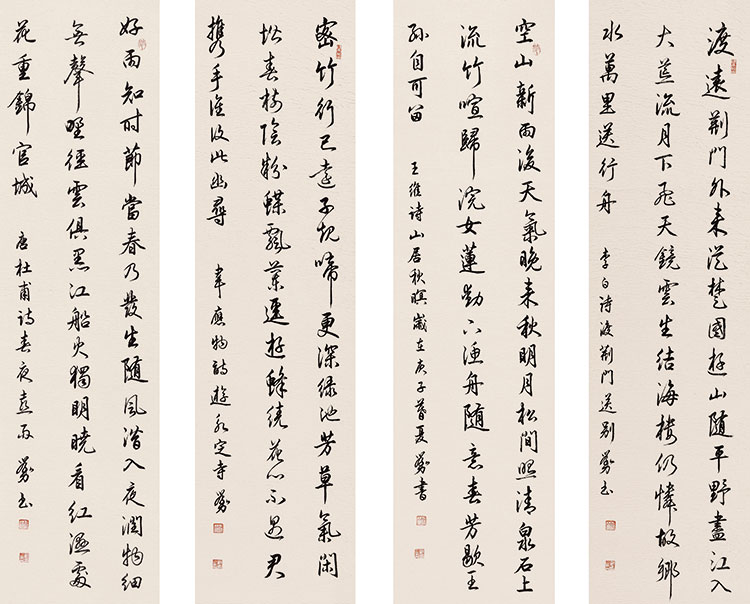 渡遠荆門外来從楚國遊山隨平野盡江入
大荒流月下飛天鏡雲生結海樓仍憐故鄉
水萬里送行舟
李白诗渡荆門送别 书
空山新雨後天氣晚来秋明月松間照清泉石上
流竹喧歸浣女蓮動下漁舟隨意春芳歇王
孫自可留
王維诗山居秋暝歲在庚子暮夏 書
密竹行已遠子規啼更深绿池芳草氣閑
齋春樹陰粉蝶飄蘭逕遊蜂繞花心不遇君
携手誰復此幽尋
韋應物詩遊永定寺
好雨知时節當春乃發生随風潛入夜潤物細
無聲野徑雲俱黑江船火獨明曉看紅濕處
花重錦官城
唐杜甫詩春夜喜雨 书